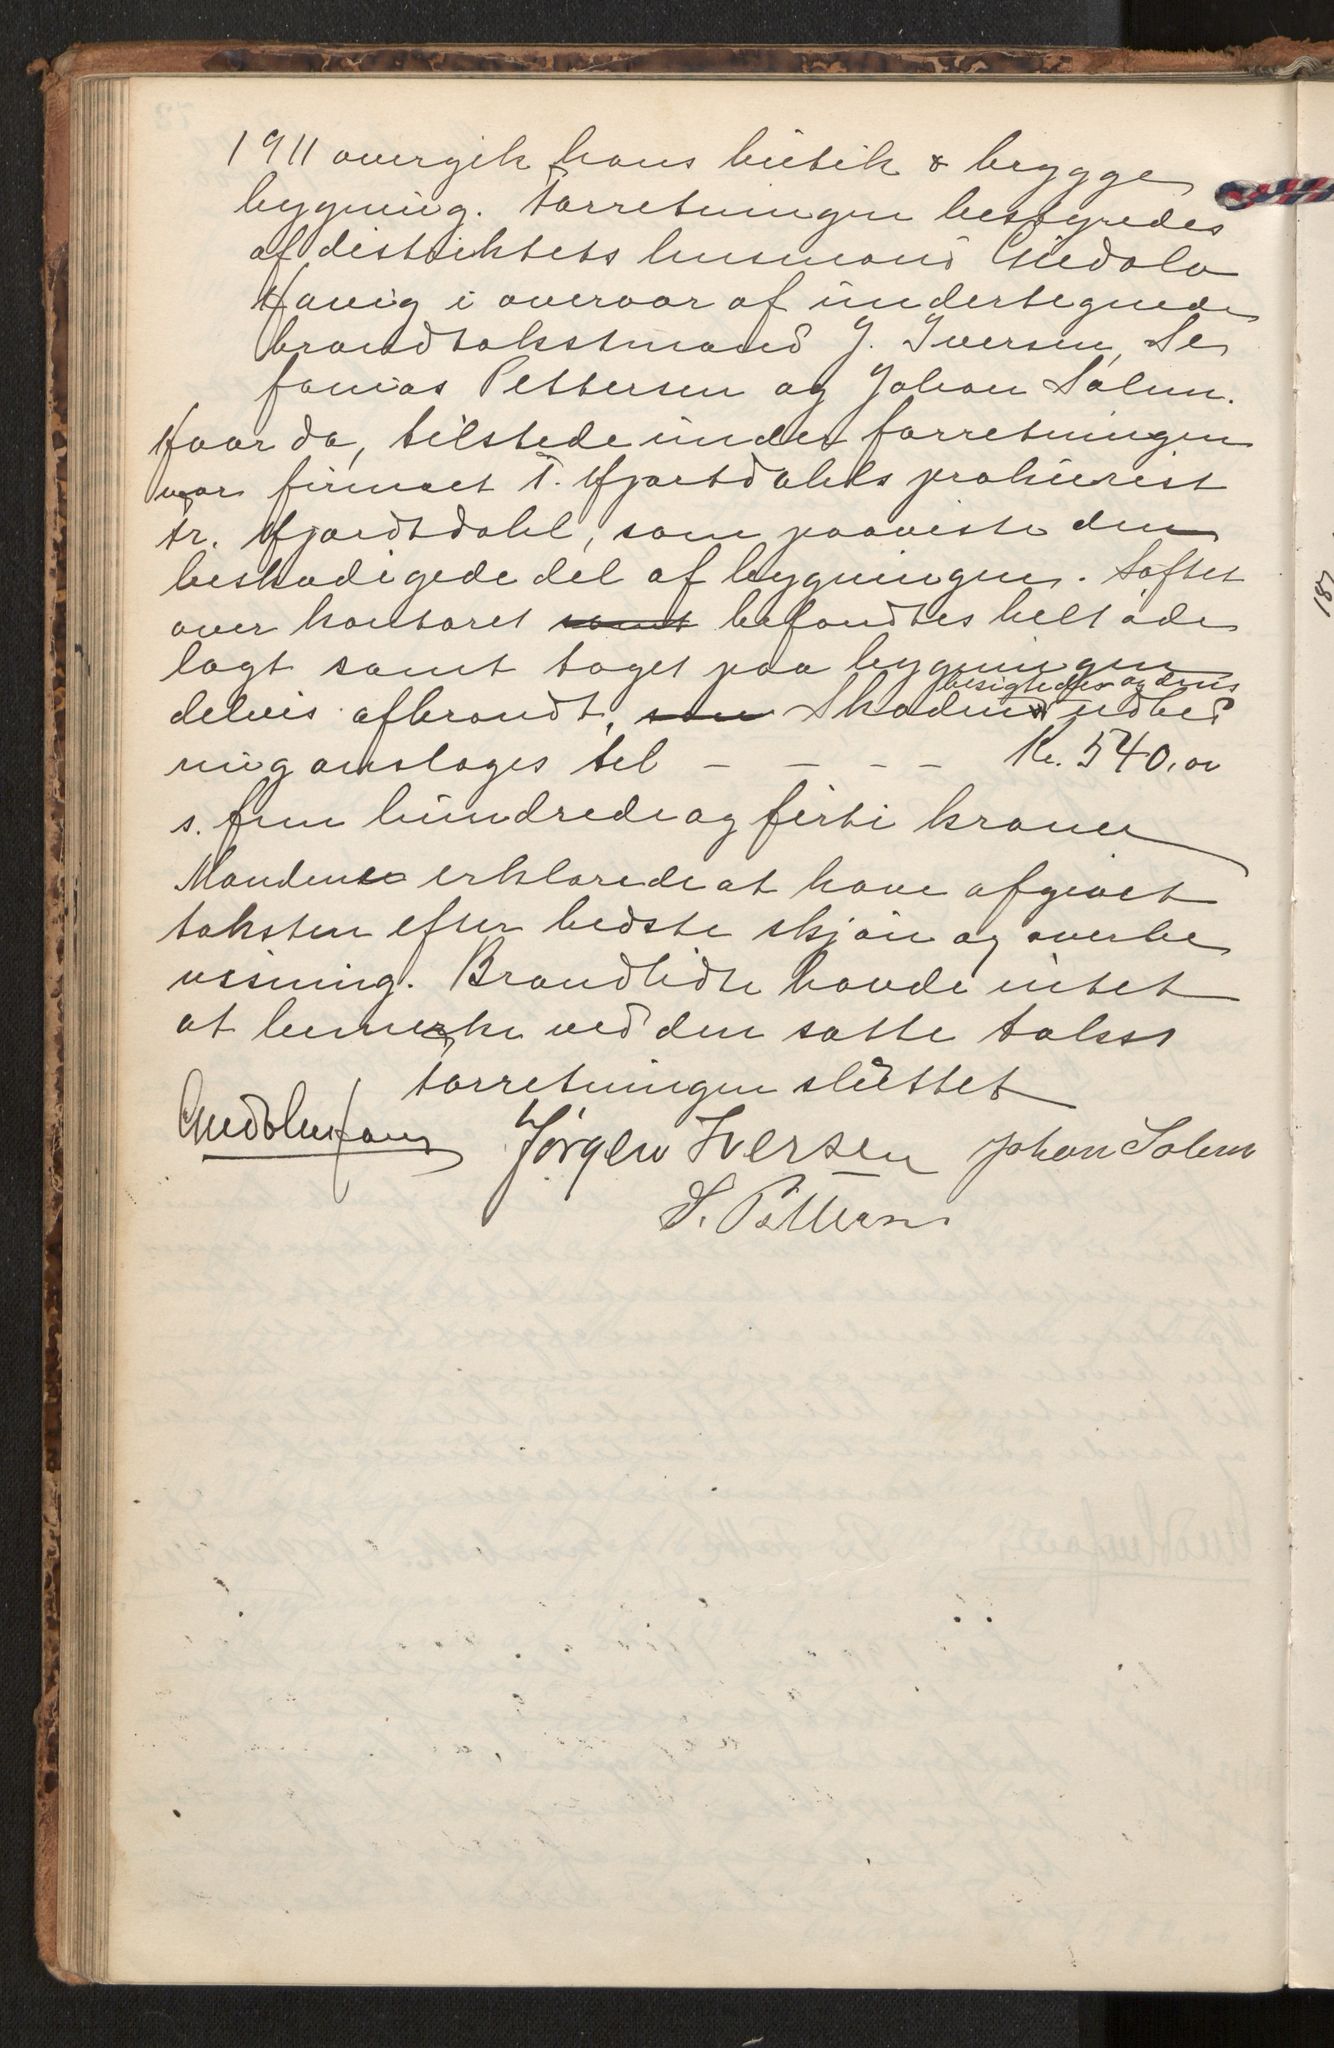 1911 overgik hans butik & brygge
bygning. Forretningen bestyredes
af distriktets lensmand Gudolv
Havig i overvær af undertegnede
brandtakstmænd J. Iversen, Se
fanias Pettersen og Johan Salem.
Hvor da, tilstede under forretningen
var firmaet T. Hjortdahls prokurist
Fr. Hjordtdahl, som paaviste den
beskadigede del af bygningen. Loftet
over kontoret samt befandtes helt øde
lagt samt taget paa bygningen
besigtedes og dens
delvis afbrandt, som Skaden udbed
ring ansloges til — — — — Kr. 540,00
s. fem hundrede og firti kroner
Mændene erklærede at have afgivet
taksten efter bedste skjøn og overbe
visning. Brandlidte havde intet
at bemerke ved den satte takst
Forretningen sluttet
Gudolv Havig Jørgen Iversen Johan Salem
S. Pettersen
187